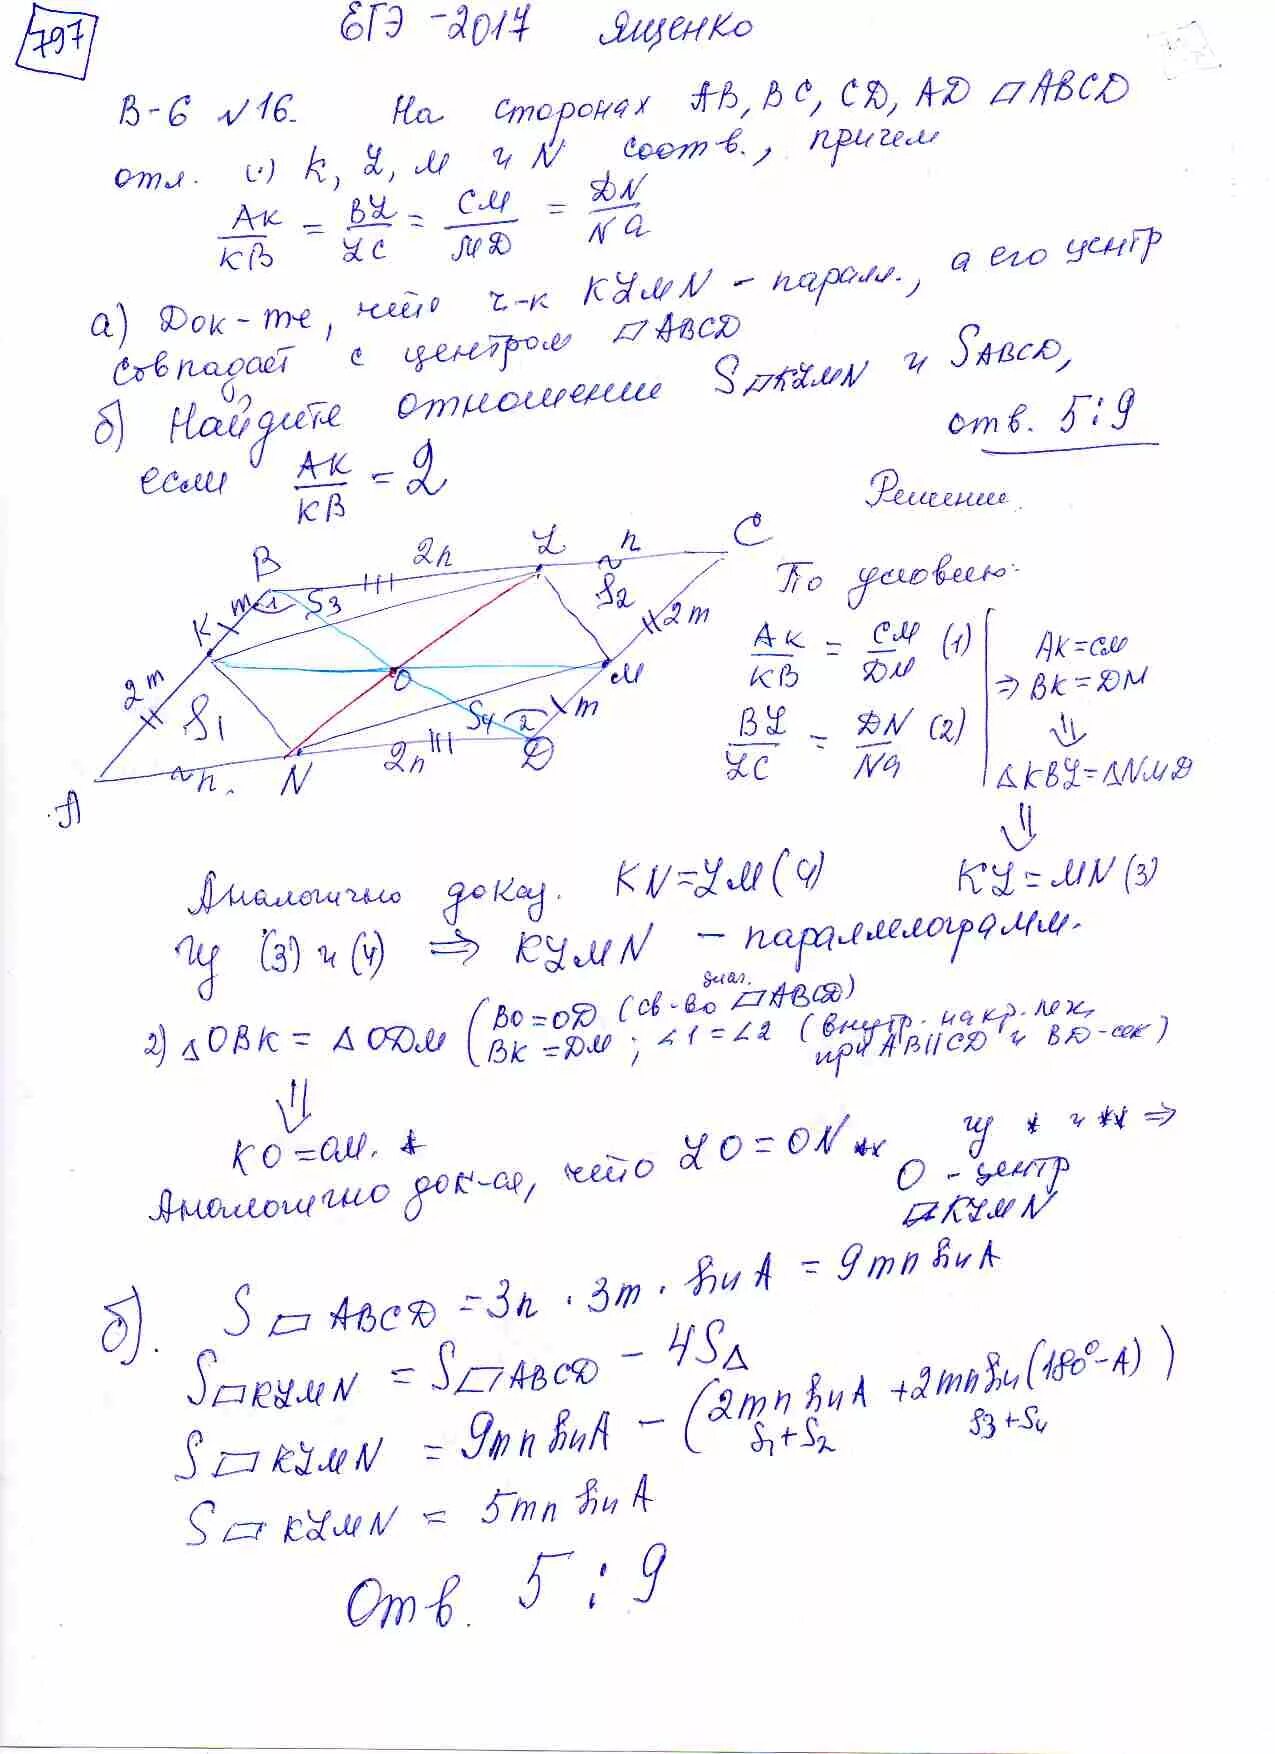 797
ЕГЭ - 2017 Ященко
В-6 №16. На сторонах AB, BC, CD, AD ▱ABCD
отм. (·) K, L, M и N соотв., причем
AK/KB = BL/LC = CM/MD = DN/NA
а) Док-те, что ч-к KLMN - паралл., а его центр
совпадает с центром ▱ABCD
б) Найдите отношение S▱KLMN и SABCD,
если AK/KB = 2
отв. 5:9
Решение
B 2n L n C
K m 1 S3 S2 2m
2m S1 O M
S4 2 m
A n N 2n D
По условию:
AK/KB = CM/DM (1)
BL/LC = DN/NA (2)
AK=CM
⇒ BK=DM
⇓
△KBL=△NMD
⇓
Аналогично доказ. KN=LM (4) KL=MN (3)
Из (3) и (4) ⇒ KLMN - параллелограмм.
2) △OBK = △ODM (BO=OD (св-во диаг. ▱ABCD)
BK=DM; ∠1=∠2 (внутр. накр. леж.
при AB||CD и BD-сек)
⇓
KO=OM. *
Аналогично док-ся, что LO=ON ** Из * и ** ⇒
O - центр
▱KLMN
б). S▱ABCD = 3n · 3m · sin A = 9mn sin A
S▱KLMN = S▱ABCD - 4S△
S▱KLMN = 9mn sin A - (2mn sin A + 2mn sin(180°-A))
S1+S2 S3+S4
S▱KLMN = 5mn sin A
Отв. 5:9